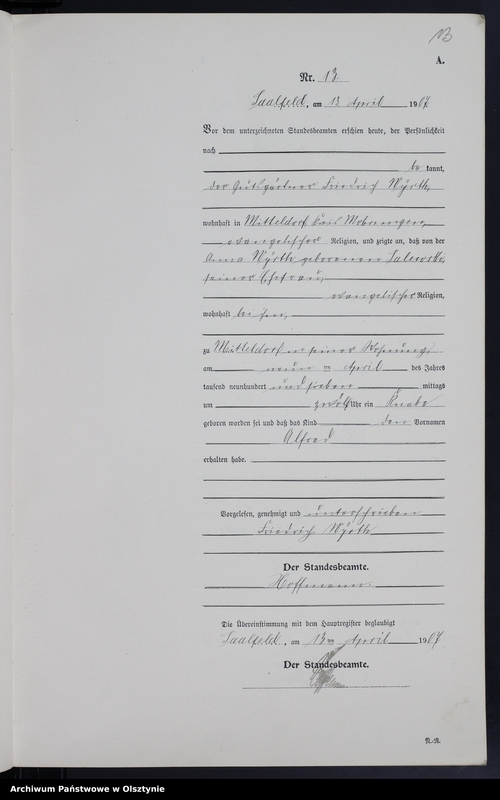 13
A.
Nr. 13.
Saalfeld, am 13 April 1907
Vor dem unterzeichneten Standesbeamten erschien heute, der Persönlichkeit
nach
be kannt,
der Gutsgärtner Friedrich Wyrth,
wohnhaft in Mitteldorf, Kreis Mohrungen,
evangelischer Religion, und zeigte an, daß von der
Anna Wyrth geborenen
seiner Ehefrau,
evangelischer Religion,
wohnhaft bei ihm,
zu Mitteldorf in seiner Wohnung
am neun ten April des Jahres
tausend neunhundert und sieben mittags
um zwölf Uhr ein Knabe
geboren worden sei und daß das Kind den Vornamen
Alfred
erhalten habe.
Vorgelesen, genehmigt und unterschrieben
Friedrich Wyrth
Der Standesbeamte.
Hoffmann.
Die Übereinstimmung mit dem Hauptregister beglaubigt
Saalfeld, am 13 ten April 1907
Der Standesbeamte.
N.-N.
Archiwum Państwowe w Olsztynie